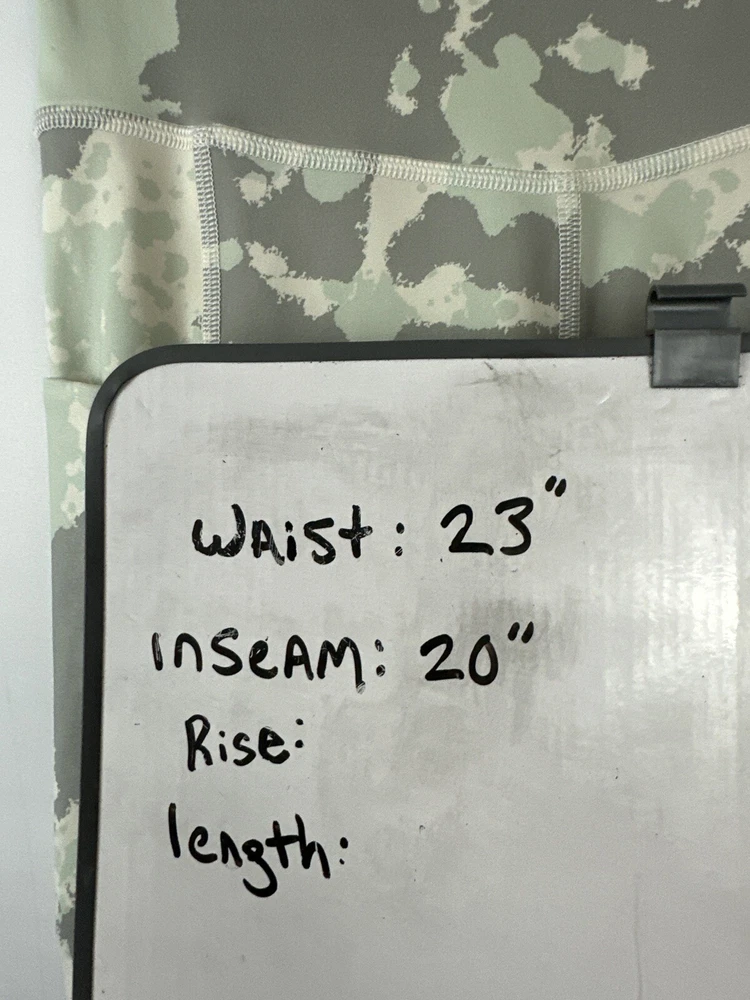 WAist: 23"
InSeAM: 20"
Rise:
length: